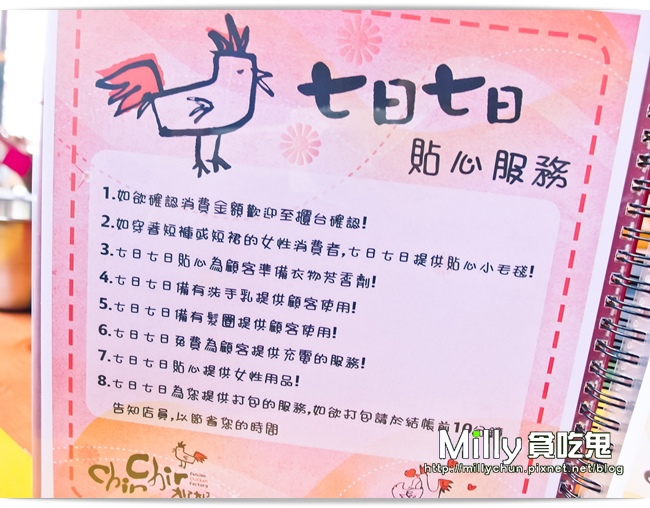 七日七日
貼心服務
1.如欲確認消費金額歡迎至櫃台確認!
2.如穿著短褲或短裙的女性消費者,七日七日提供貼心小毛毯!
3.七日七日貼心為顧客準備衣物芳香劑!
4.七日七日備有洗手乳提供顧客使用!
5.七日七日備有髮圈提供顧客使用!
6.七日七日免費為顧客提供充電的服務!
7.七日七日貼心提供女性用品!
8.七日七日為您提供打包的服務,如欲打包請於結帳前10分鐘
告知店員,以節省您的時間
Chir Chir
Fusion
Chicken
Factory
Milly 貪吃鬼
http://millychun.pixnet.net/blog